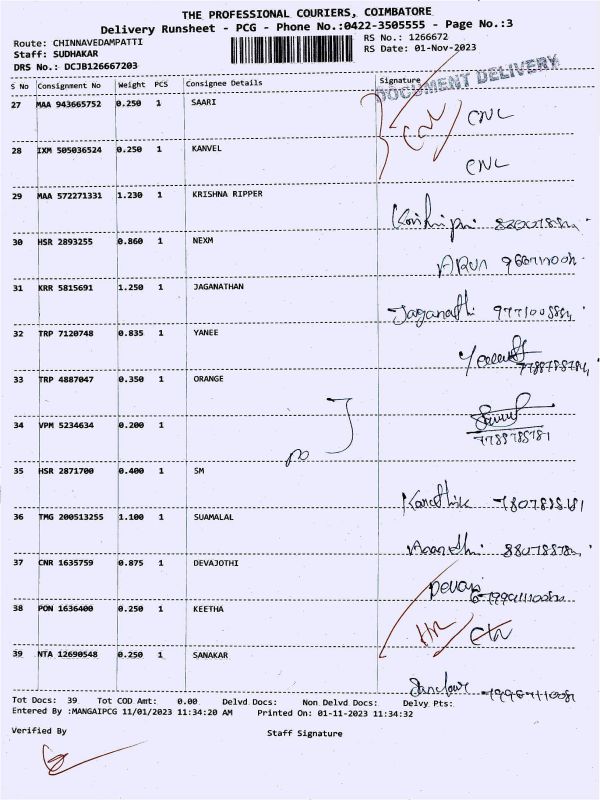 THE PROFESSIONAL COURIERS, COIMBATORE
Delivery Runsheet - PCG - Phone No.:0422-3505555 - Page No.:3
Route: CHINNAVEDAMPATTI
RS No.: 1266672
Staff: SUDHAKAR
RS Date: 01-Nov-2023
DRS No.: DCJB126667203
DOCUMENT DELIVERY
S No Consignment No Weight PCS Consignee Details Signature
27 MAA 943665752 0.250 1 SAARI CNL
28 IXM 505036524 0.250 1 KANVEL CNL
29 MAA 572271331 1.230 1 KRISHNA RIPPER
30 HSR 2893255 0.860 1 NEXM ARUN
31 KRR 5815691 1.250 1 JAGANATHAN
32 TRP 7120748 0.835 1 YANEE
33 TRP 4887047 0.350 1 ORANGE
34 VPM 5234634 0.200 1
35 HSR 2871700 0.400 1 SM
36 TMG 200513255 1.100 1 SUAMALAL
37 CNR 1635759 0.875 1 DEVAJOTHI
38 PON 1636400 0.250 1 KEETHA
39 NTA 12690548 0.250 1 SANAKAR
Tot Docs: 39 Tot COD Amt: 0.00 Delvd Docs: Non Delvd Docs: Delvy Pts:
Entered By :MANGAIPCG 11/01/2023 11:34:20 AM Printed On: 01-11-2023 11:34:32
Verified By
Staff Signature